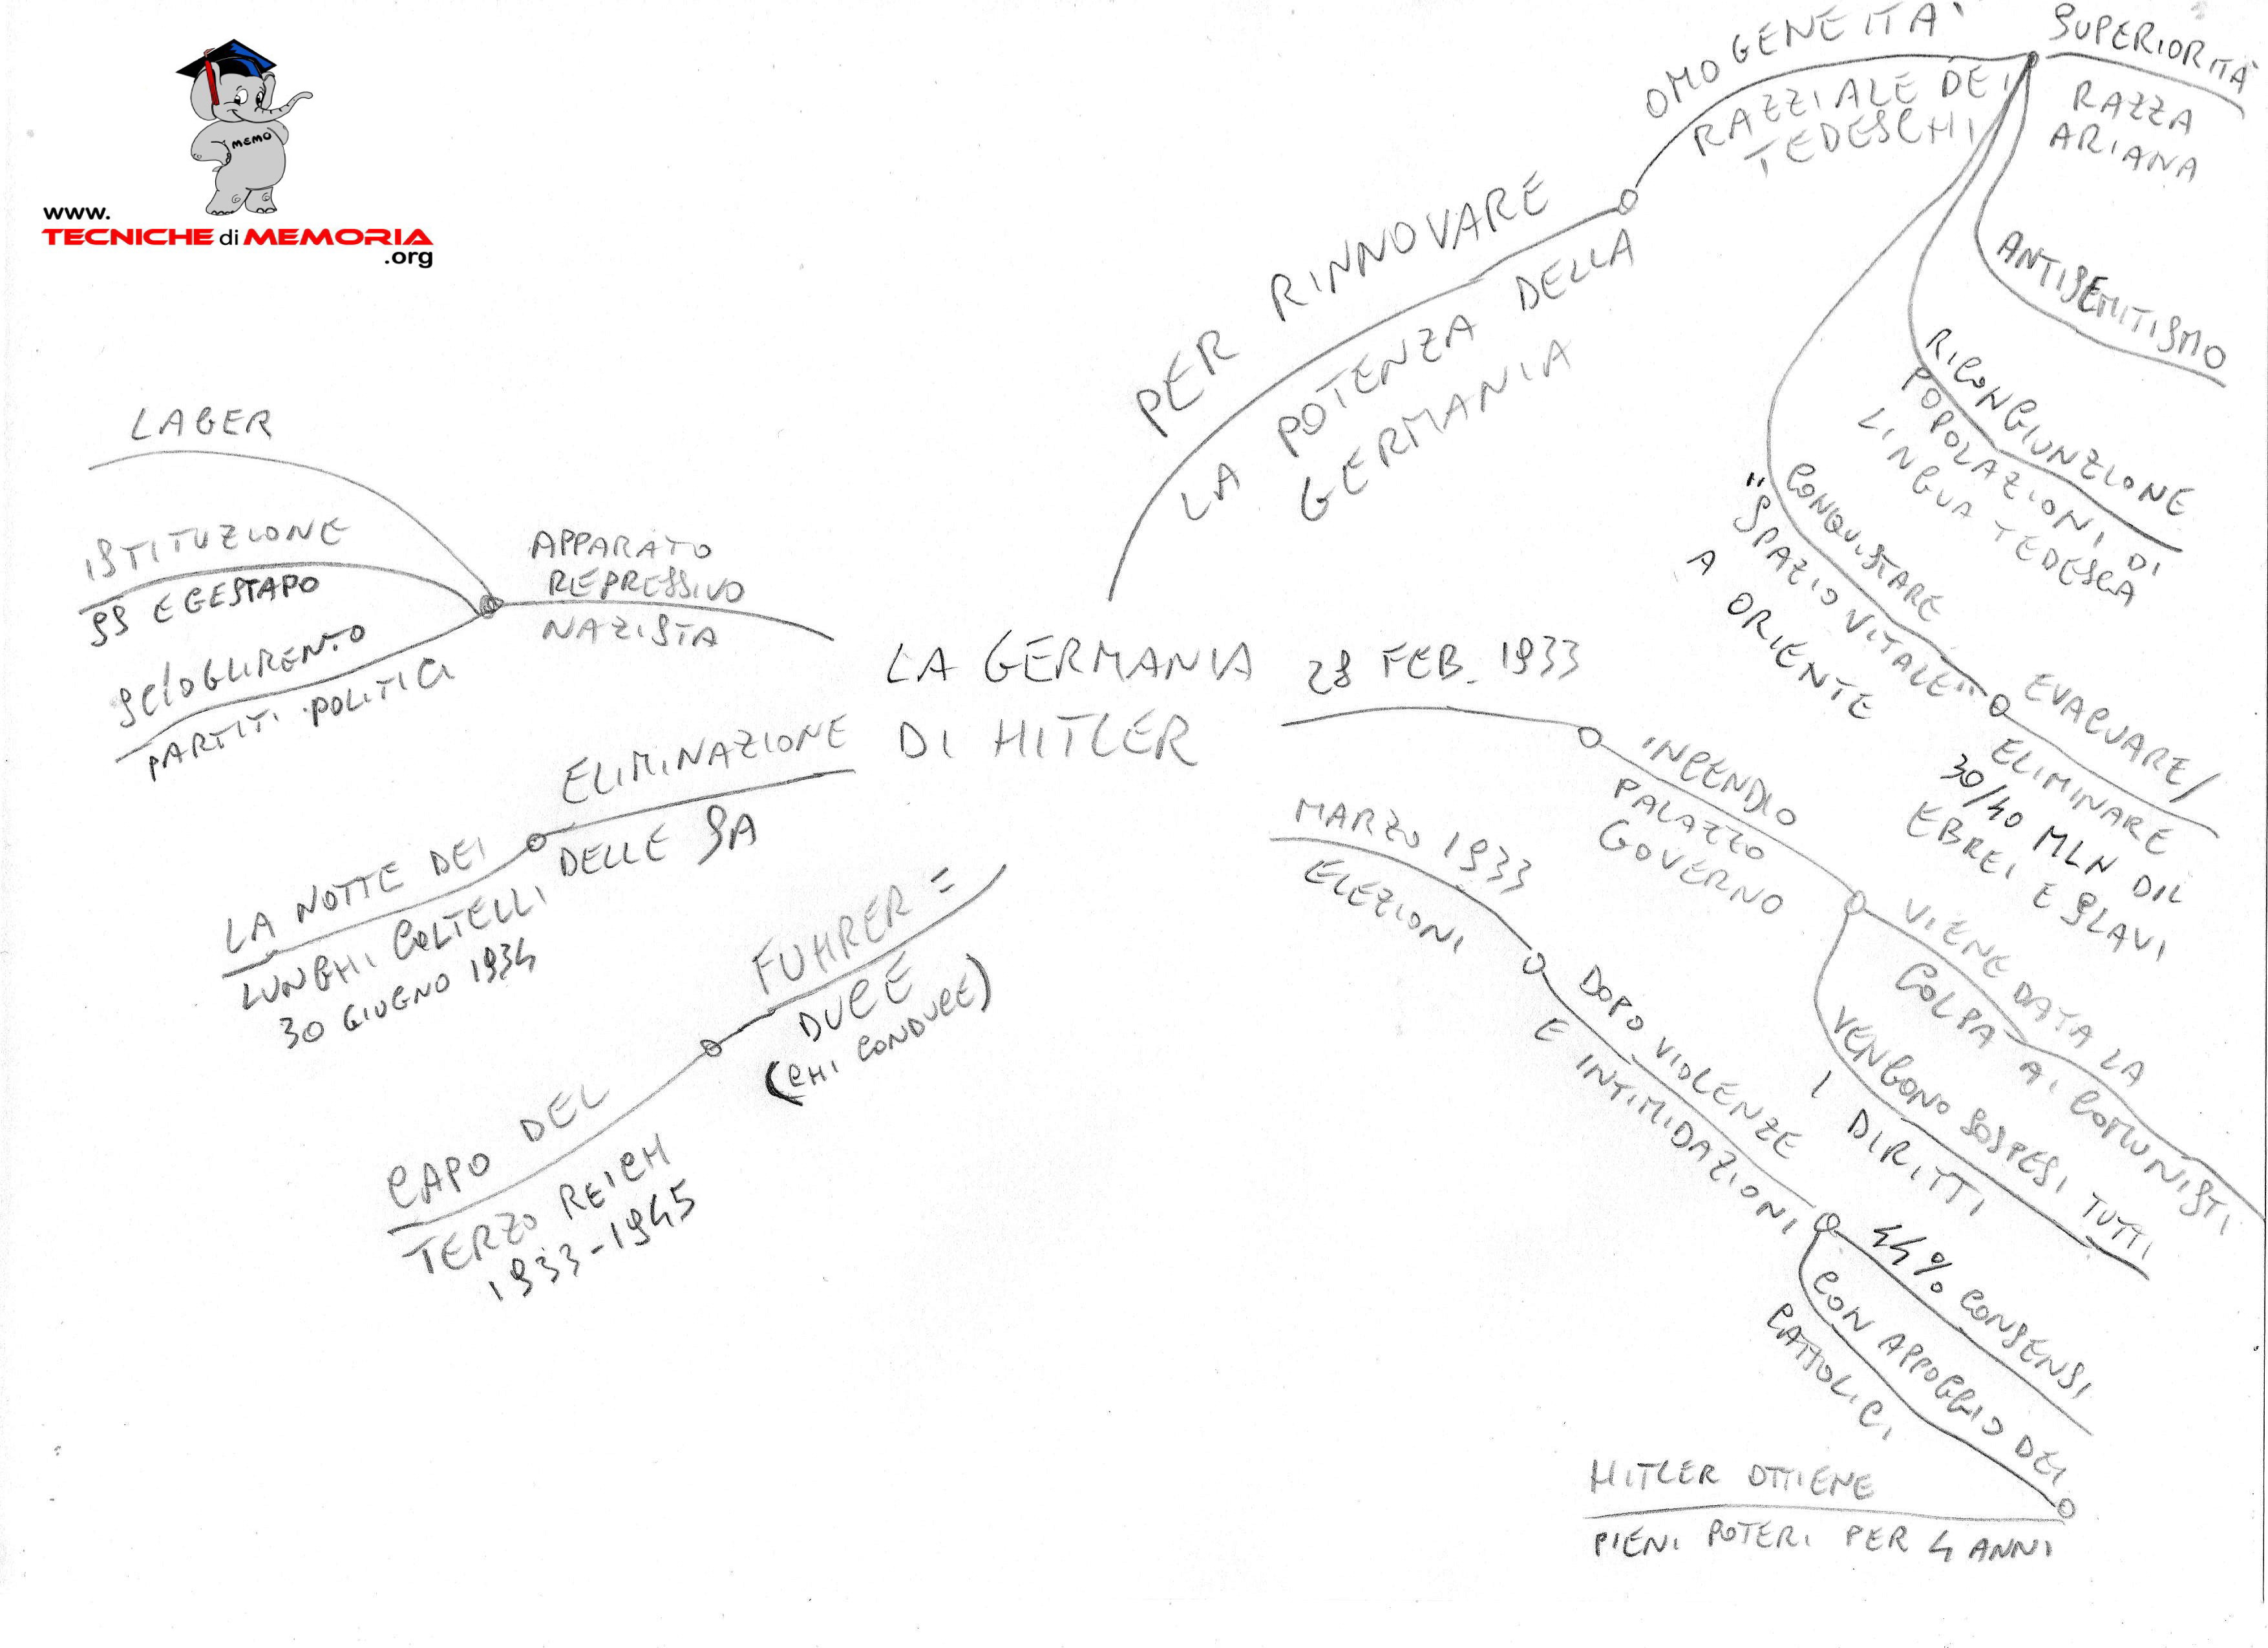 MEMO
www.
TECNICHE di MEMORIA
.org
LA GERMANIA
DI HITLER
PER RINNOVARE
LA POTENZA DELLA
GERMANIA
OMOGENEITA'
RAZZIALE DEI
TEDESCHI
SUPERIORITA'
RAZZA
ARIANA
ANTISEMITISMO
RICONGIUNZIONE
POPOLAZIONI DI
LINGUA TEDESCA
CONQUISTARE
"SPAZIO VITALE"
A ORIENTE
EVACUARE/
ELIMINARE
30/40 MLN DI
EBREI E SLAVI
28 FEB. 1933
INCENDIO
PALAZZO
GOVERNO
VIENE DATA LA
COLPA AI COMUNISTI
VENGONO SOSPESI TUTTI
I DIRITTI
MARZO 1933
ELEZIONI
DOPO VIOLENZE
E INTIMIDAZIONI
44% CONSENSI
CON APPOGGIO DEI
CATTOLICI
HITLER OTTIENE
PIENI POTERI PER 4 ANNI
FUHRER =
DUCE
(CHI CONDUCE)
CAPO DEL
TERZO REICH
1933-1945
ELIMINAZIONE
DELLE SA
LA NOTTE DEI
LUNGHI COLTELLI
30 GIUGNO 1934
APPARATO
REPRESSIVO
NAZISTA
LAGER
ISTITUZIONE
SS E GESTAPO
SCIOGLIMENTO
PARTITI POLITICI